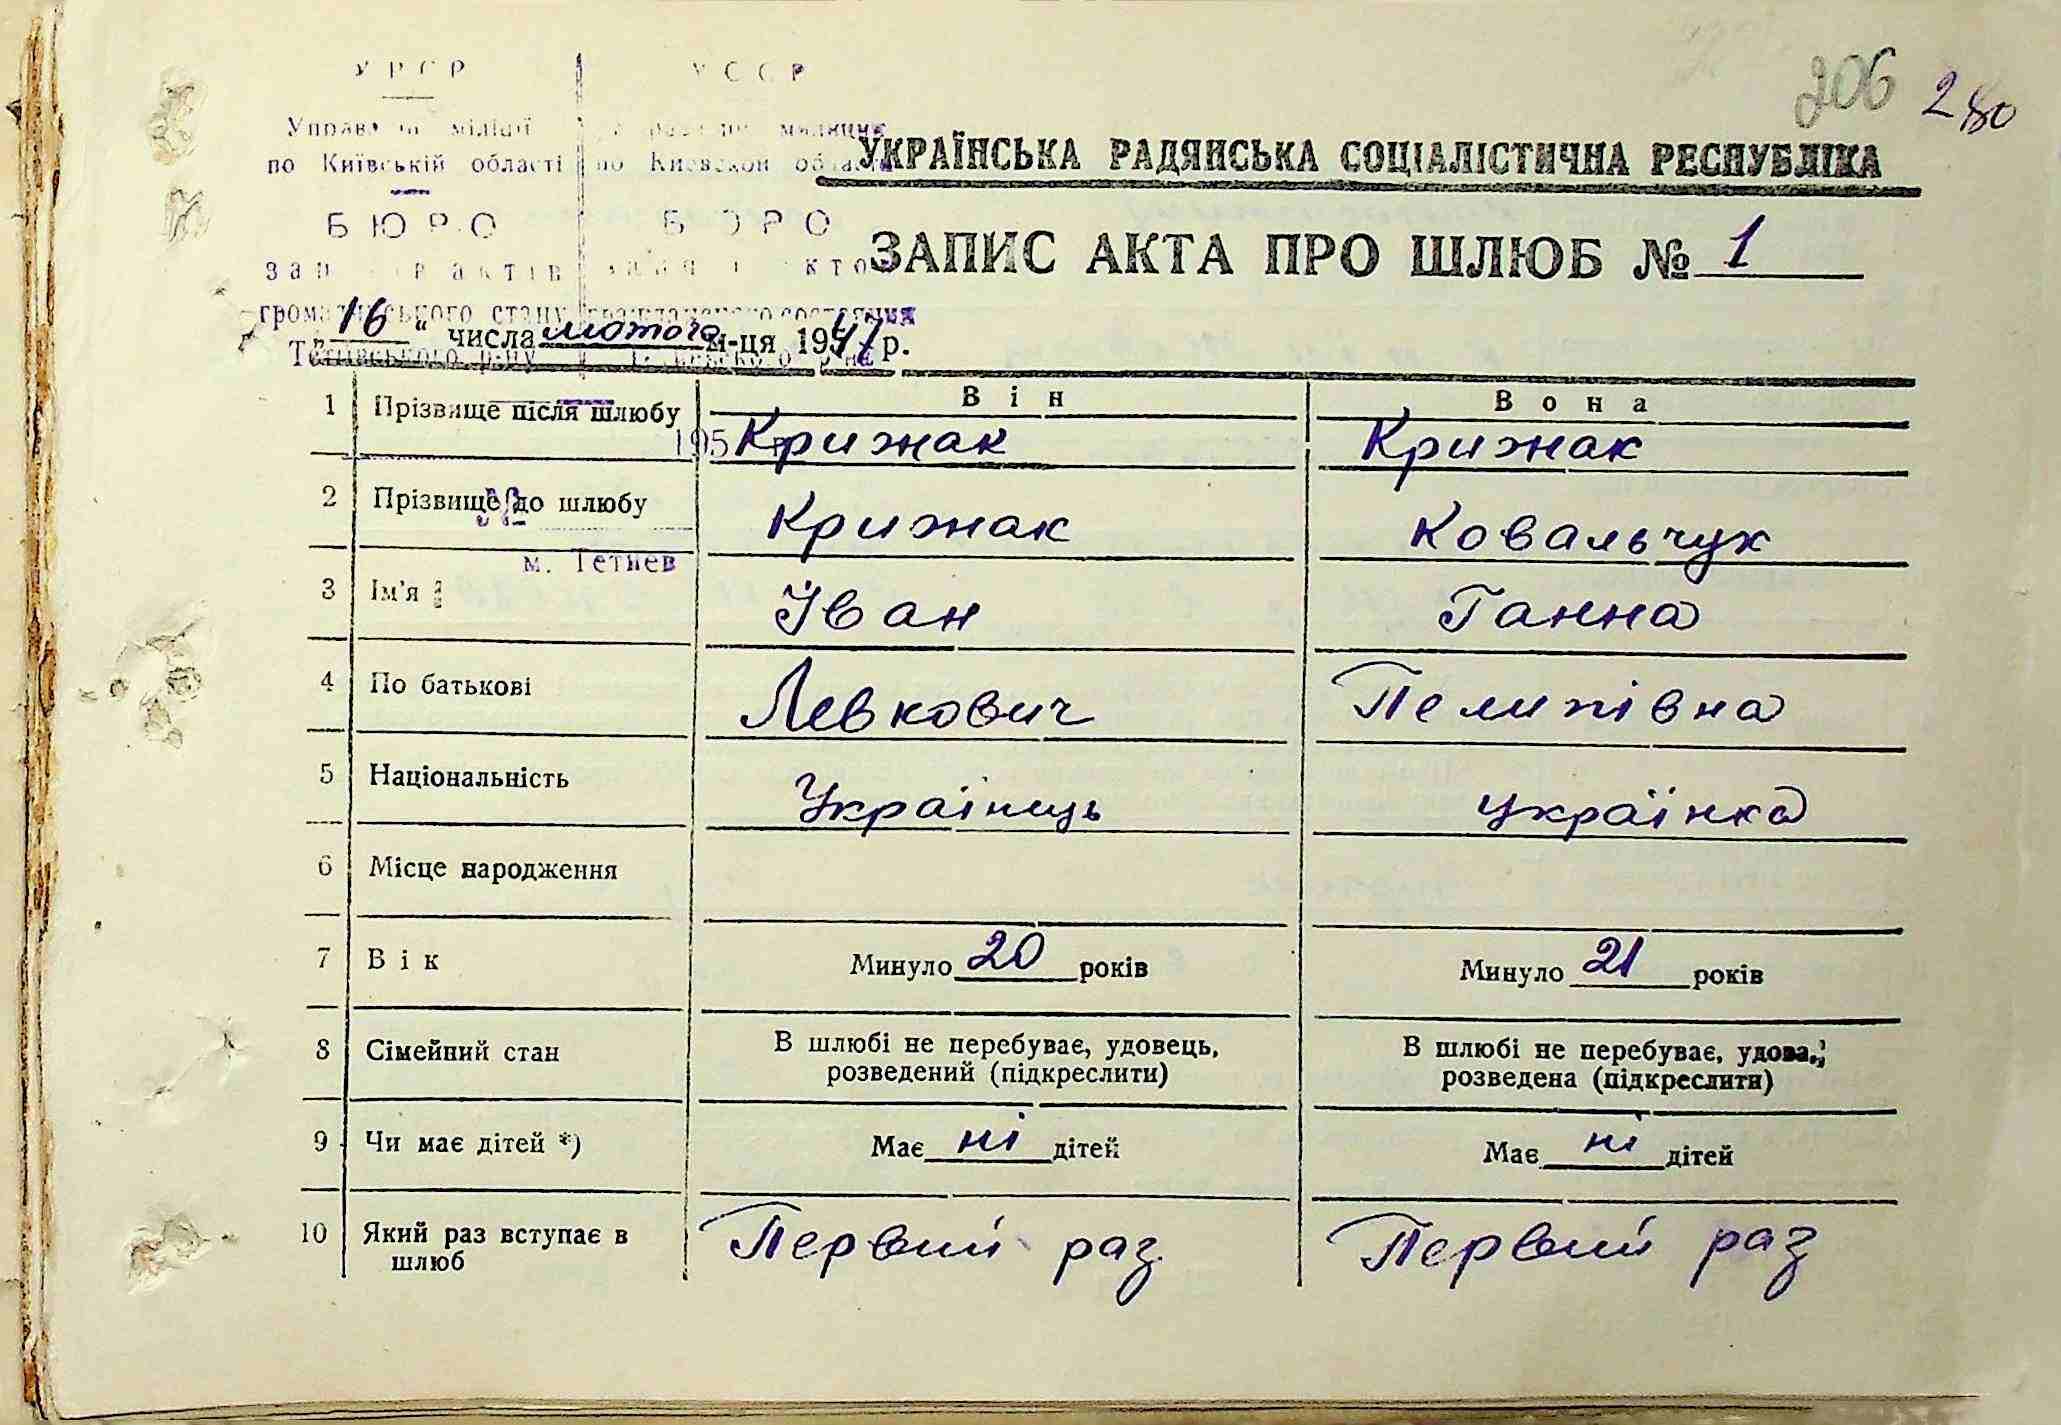 УРСР УССР
206 280
Управ міліції милиции
по Київській області по Киевской области
УКРАЇНСЬКА РАДЯНСЬКА СОЦІАЛІСТИЧНА РЕСПУБЛІКА
БЮРО БЮРО
ЗАПИС АКТА ПРО ШЛЮБ № 1
громадянського стану гражданского состояния
„16“ числа лютого м-ця 1947 р.
Тетіївського р-ну
Він Вона
1 Прізвище після шлюбу Крижак Крижак
195
2 Прізвище до шлюбу Крижак Ковальчук
№
м. Тетиев
3 Ім'я Іван Ганна
4 По батькові Левкович Пелипівна
5 Національність Українець українка
6 Місце народження
7 Вік Минуло 20 років Минуло 21 років
8 Сімейний стан В шлюбі не перебуває, удовець, В шлюбі не перебуває, удова,
розведений (підкреслити) розведена (підкреслити)
9 Чи має дітей *) Має ні дітей Має ні дітей
10 Який раз вступає в Первий раз Первий раз
шлюб